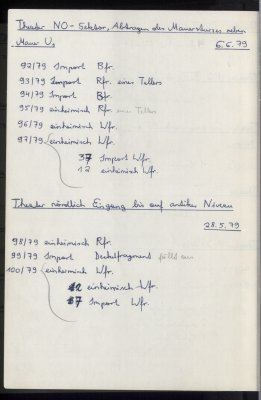 Theater NO-Sektor, Abtragen des Mauersturzes neben
Mauer U,
6.6.79
92/79 Import Bfr.
93/79 Import Rfr. eines Tellers
94/79 Import Bfr
95/79 einheimisch Rfr. eines Tellers
96/79 einheimisch Wfr.
97/79 einheimisch Wfr.
37 Import Wfr.
12 einheimisch Wfr.
Theater nördlich Eingang bis auf antikes Niveau
28.5.79
98/79 einheimisch Rfr.
99/79 Import Deckelfragment fällt aus
100/79 einheimisch Wfr.
12 einheimisch Wfr.
17 Import Wfr.